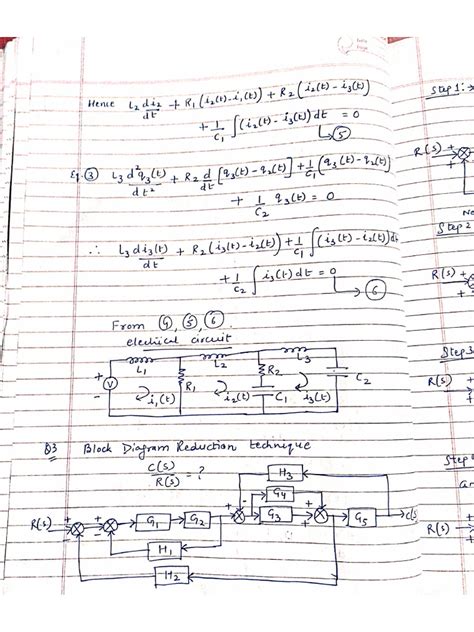 Hence L2 di2/dt + R1(i2(t)-i1(t)) + R2(i2(t)-i3(t))
+ 1/C1 ∫(i2(t)-i3(t))dt = 0
→ ⑤
Eq. ③ L3 d²q3(t)/dt² + R2 d/dt [q3(t)-q2(t)] + 1/C1 (q3(t)-q2(t))
+ 1/C2 q3(t) = 0
∴ L3 di3(t)/dt + R2(i3(t)-i2(t)) + 1/C1 ∫(i3(t)-i2(t))dt
+ 1/C2 ∫i3(t)dt = 0
→ ⑥
From ④, ⑤, ⑥
electrical circuit
L1 L2 L3
+ V - R1 R2 C2
i1(t) i2(t) C1 i3(t)
Q3 Block Diagram Reduction technique
C(S)/R(S) = ?
H3
G4
R(S) + - + - G1 G2 + + - G3 + + G5 C(S)
H1
H2
Step 1:
R(S) +
Step 2
R(S) +
Step 3
R(S)
Step
R(S) +